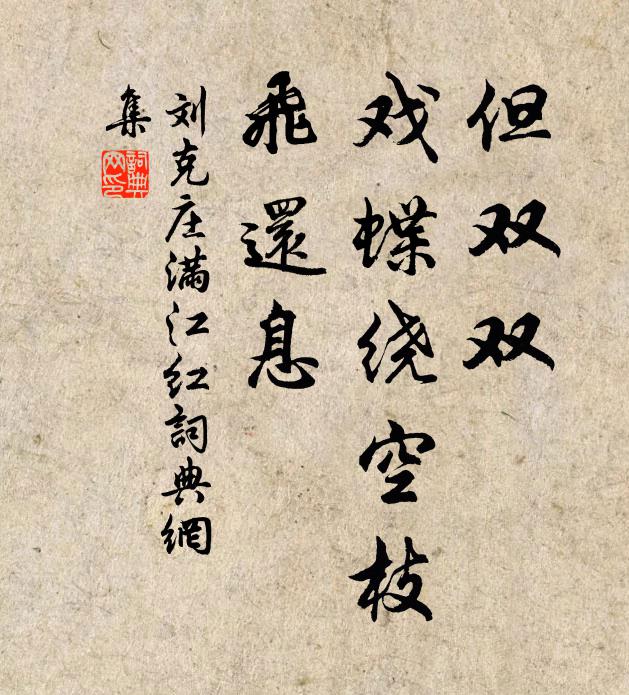 但双双
戏蝶绕空枝
飛還息
刘克庄满江红詞典網
集
詞典
网印